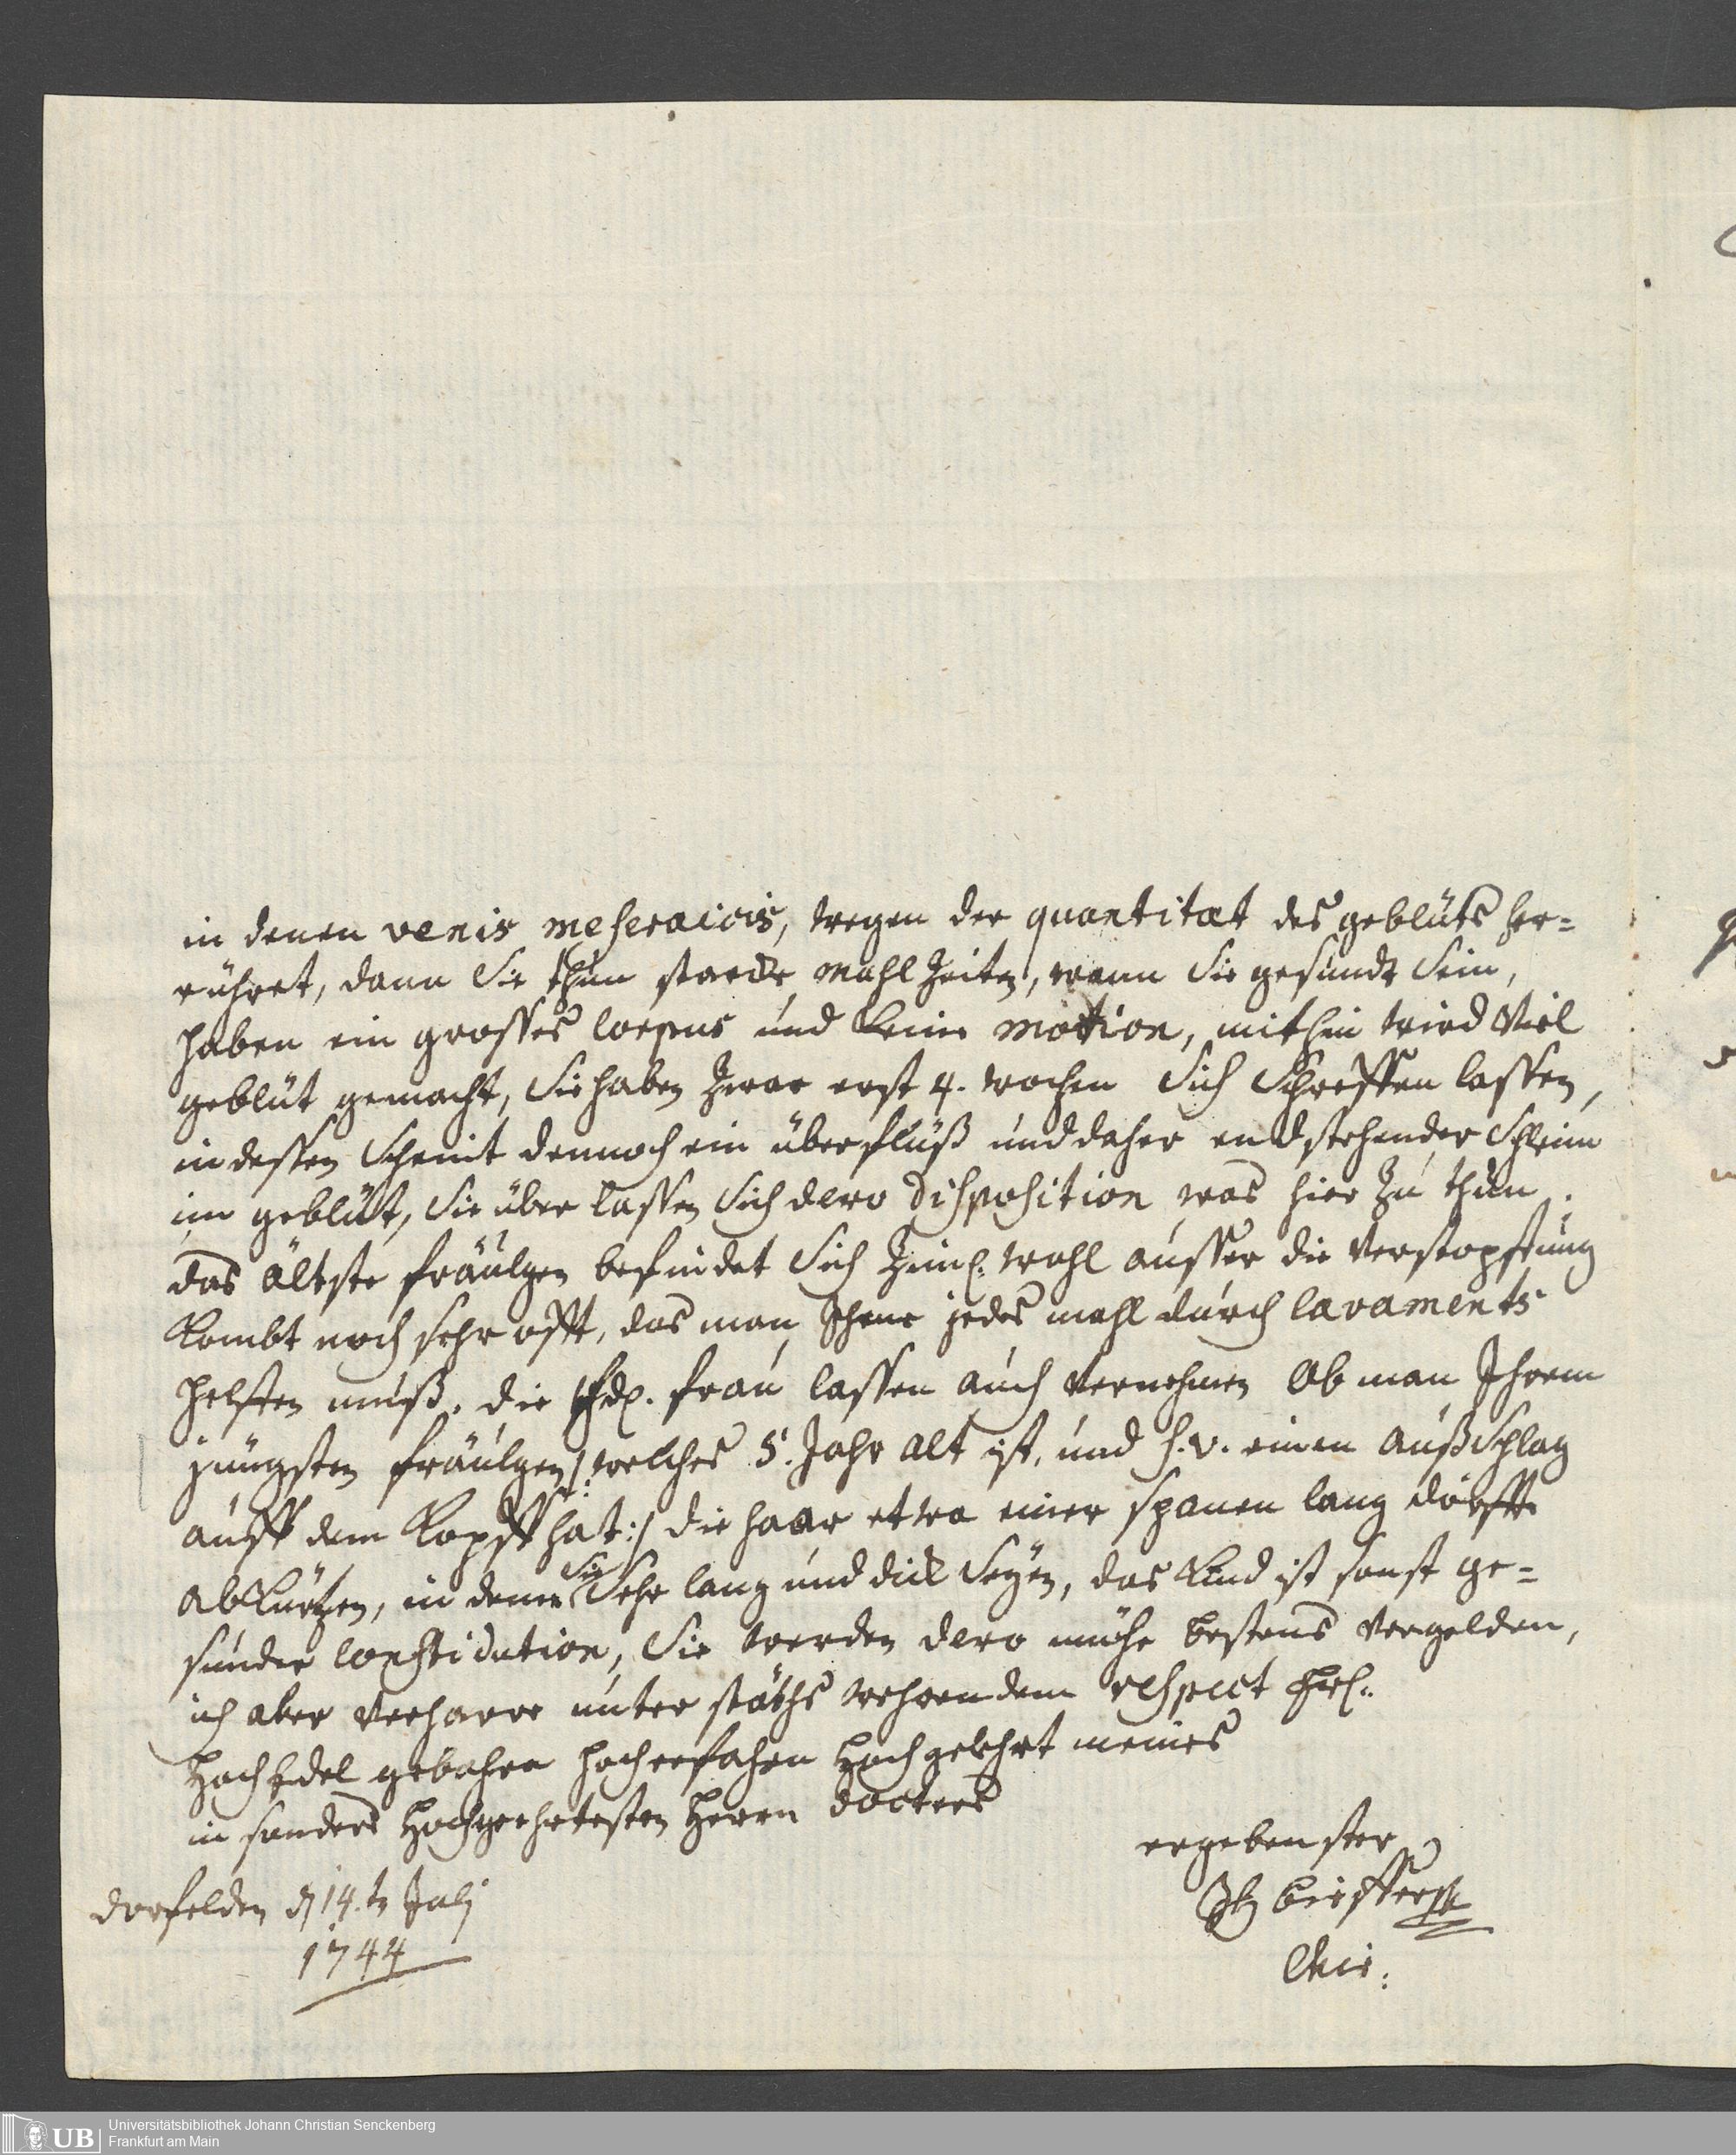 in denen venis meseraicis, wegen der quantitat des geblüts her-
rühret, dann Sie thun starcke mahl Zeiten, wann Sie gesundt Sein,
haben ein grosses Corpus und keine motion, mithin wird Viel
geblüt gemacht, Sie haben Zwar erst 4. wochen Sich Schreffen lassen,
in dessen Scheint dennoch ein überfluß und daher endstehender Schleim
im geblüt, Sie über lassen Sich dero Disposition was hier Zu thun.
das älteste fräulgen befindet Sich Ziml. wohl ausser die Verstopffung
kombt noch sehr offt, das man Ihme jedes mahl durch lavaments
helffen muß. die frau lassen auch Vernehmen Ob man Ihrem
jüngsten fräulgen /: welches 5. Jahr alt ist, und s. v. einen außschlag
auff dem Kopff hat :/ die haar etwa einer spanen lang dörffte
abkürtzen, in deme Sie Sehr lang und dick Seyen, das Kind ist sonst ge-
sunder Constidution, Sie werden dero mühe bestens Vergelden,
ich aber Verharre unter stäths wehrendem respect
Hoch Edel gebohrn hocherfahrn Hoch gelehrt meines
in sonders Hochgeehrtesten Herrn docters
ergebenster
Chir:
dorfelden d 14.t Julj
1744
UB
Universitätsbibliothek Johann Christian Senckenberg
Frankfurt am Main